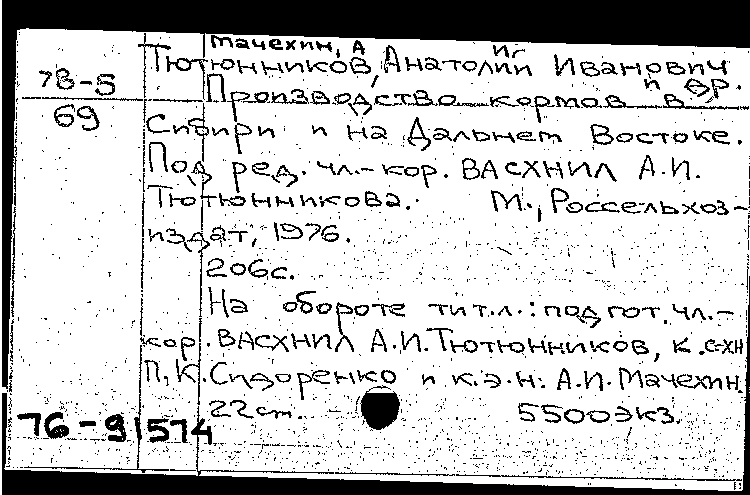 Мачехин, А
Тютюнников, Анатолий Иванович
и др.
78-5
Производство кормов в
69
Сибири и на Дальнем Востоке.
Под ред. чл.-кор. ВАСХНИЛ А.И.
Тютюнникова. М., Россельхоз-
издат, 1976.
206с.
На обороте тит.л.: подгот. чл.-
кор. ВАСХНИЛ А.И.Тютюнников, к.с-хн
П.К.Сидоренко и к.э.н. А.И.Мачехин.
22cm. 5500экз.
76-91574